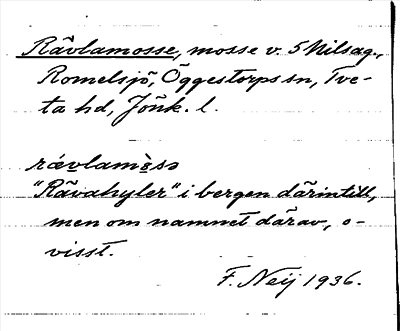 Rävlamosse, mosse v. 5 Nilsag.,
Romelsjö, Öggestorps sn, Tve-
ta hd, Jönk. l.
rævlamèss
"Rävahyler" i bergen därintill,
men om namnet därav, o-
visst.
F. Neij 1936.